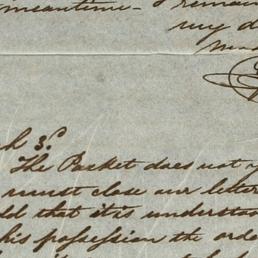 meantime - I remain
my d
h 3.d
The Packet does not
must close our letter
ld that it is understoo
his possession the orde